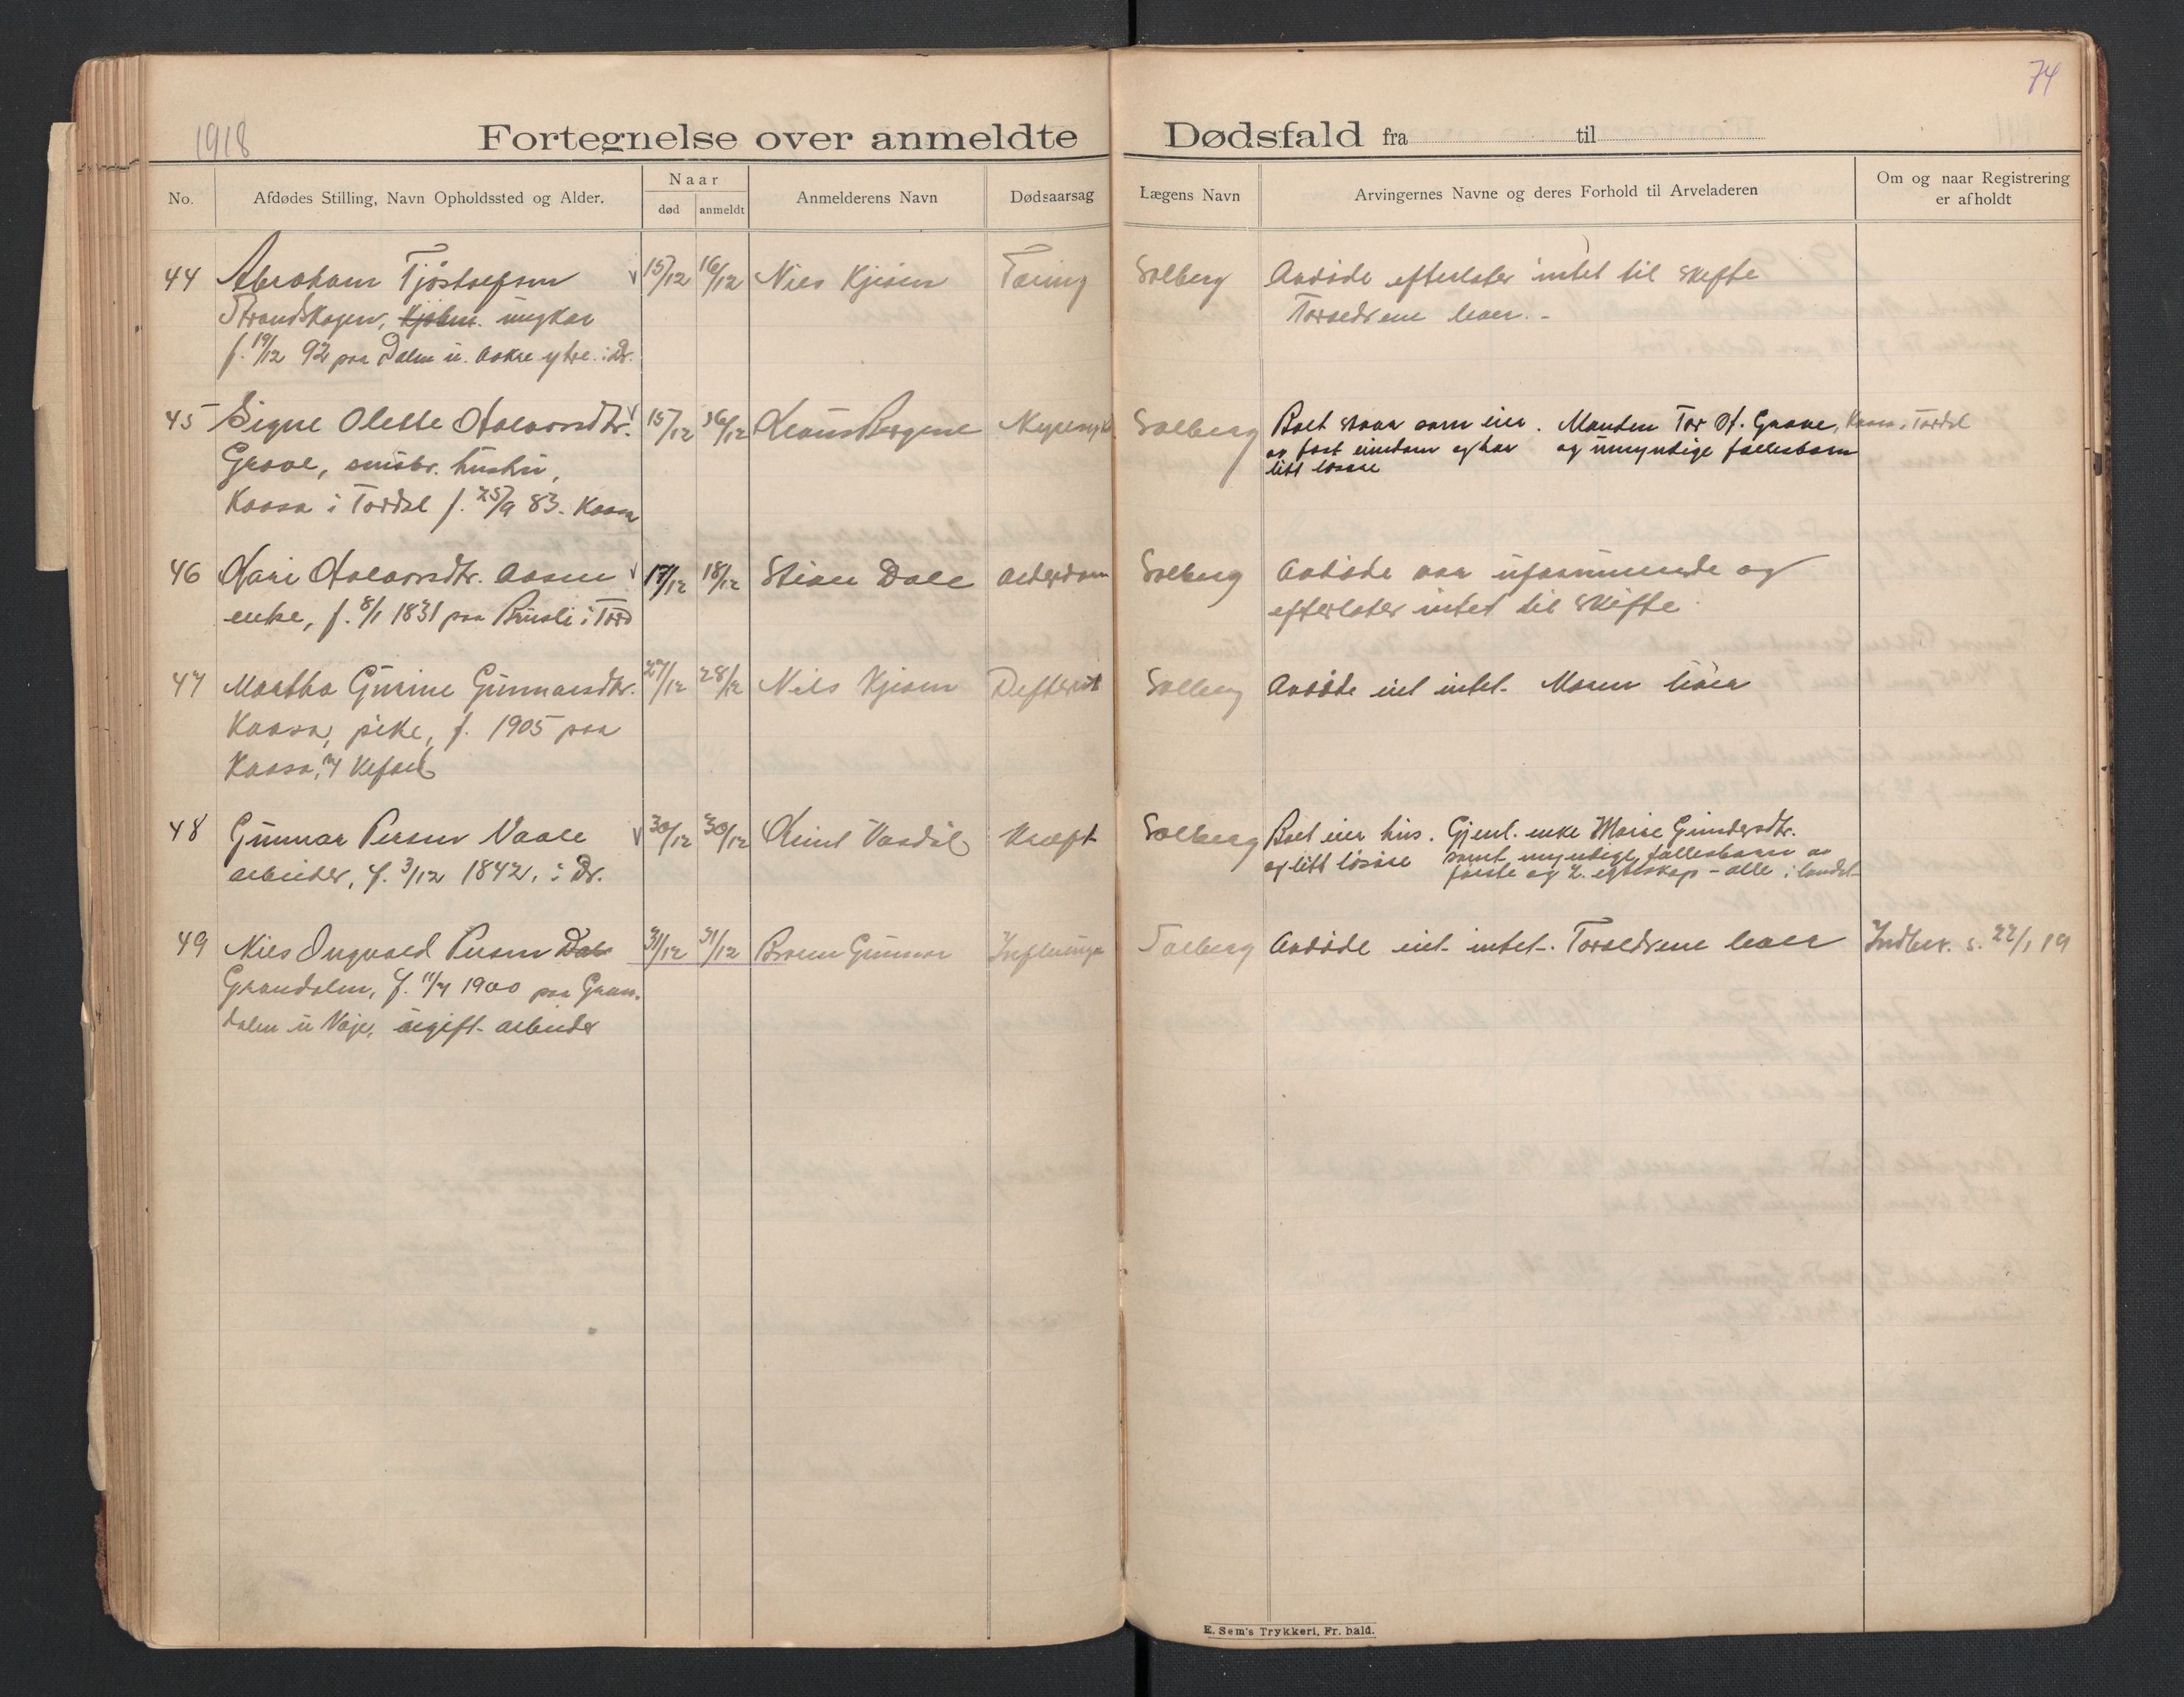 74
1918
Fortegnelse over anmeldte Dødsfald fra til
No.
Afdødes Stilling, Navn Opholdssted og Alder.
Naar
død
anmeldt
Anmelderens Navn
Dødsaarsag
Lægens Navn
Arvingernes Navne og deres Forhold til Arveladeren
Om og naar Registrering
er afholdt
44 Abraham Tjøstolfsen 15/12 16/12 Niels Kjisen Tæring Solberg Avdøde efterlater intet til skifte
Strandskogen, ungkar Forældrene lever.-
f. 19/12 92 paa Dalen u. Aakre ytre i Dr.
45 Signe Olette Halvorsdtr. 15/12 16/12 Solberg Boet staar som eier. Manden Tor H. Graave, Kaasa, Tørdal
Graave, småbr. hustru, av fast eiendom og har og umyndige fællesbarn
litt løsøre
Kaasa i Tørdal f. 25/9 83. Kaasa
46 Kari Halvorsdtr. Aasen 17/12 18/12 Stian Dale Alderdom Solberg Avdøde var uformuende og
enke, f. 8/1 1831 paa i Tørd efterlater intet til skifte
47 Martha Gurine Gunnarsdtr. 27/12 28/12 Nils Kjisen Difterit Solberg Avdøde eiet intet. Moren lever
Kaasa, pike, f. 1905 paa
Kaasa,
48 Gunnar Persen Vaale 30/12 30/12 Knut Vasdal Kræft Solberg Boet eier hus. Gjenl. enke Marie Gundersdtr.
og litt løsøre samt myndige fællesbarn av
arbeider, f. 3/12 1842. i Dr. første og 2. egteskap - alle i landet
49 Niels Ingvald Persen Dale 31/12 31/12 Gunnar Influenza Solberg Avdøde eiet intet. Forældrene lever Indber. s. 22/1 19
Grandalen, f. 11/4 1900 paa Gran-
dalen u Voje, ugift arbeider
E. Sem's Trykkeri, Fr. hald.